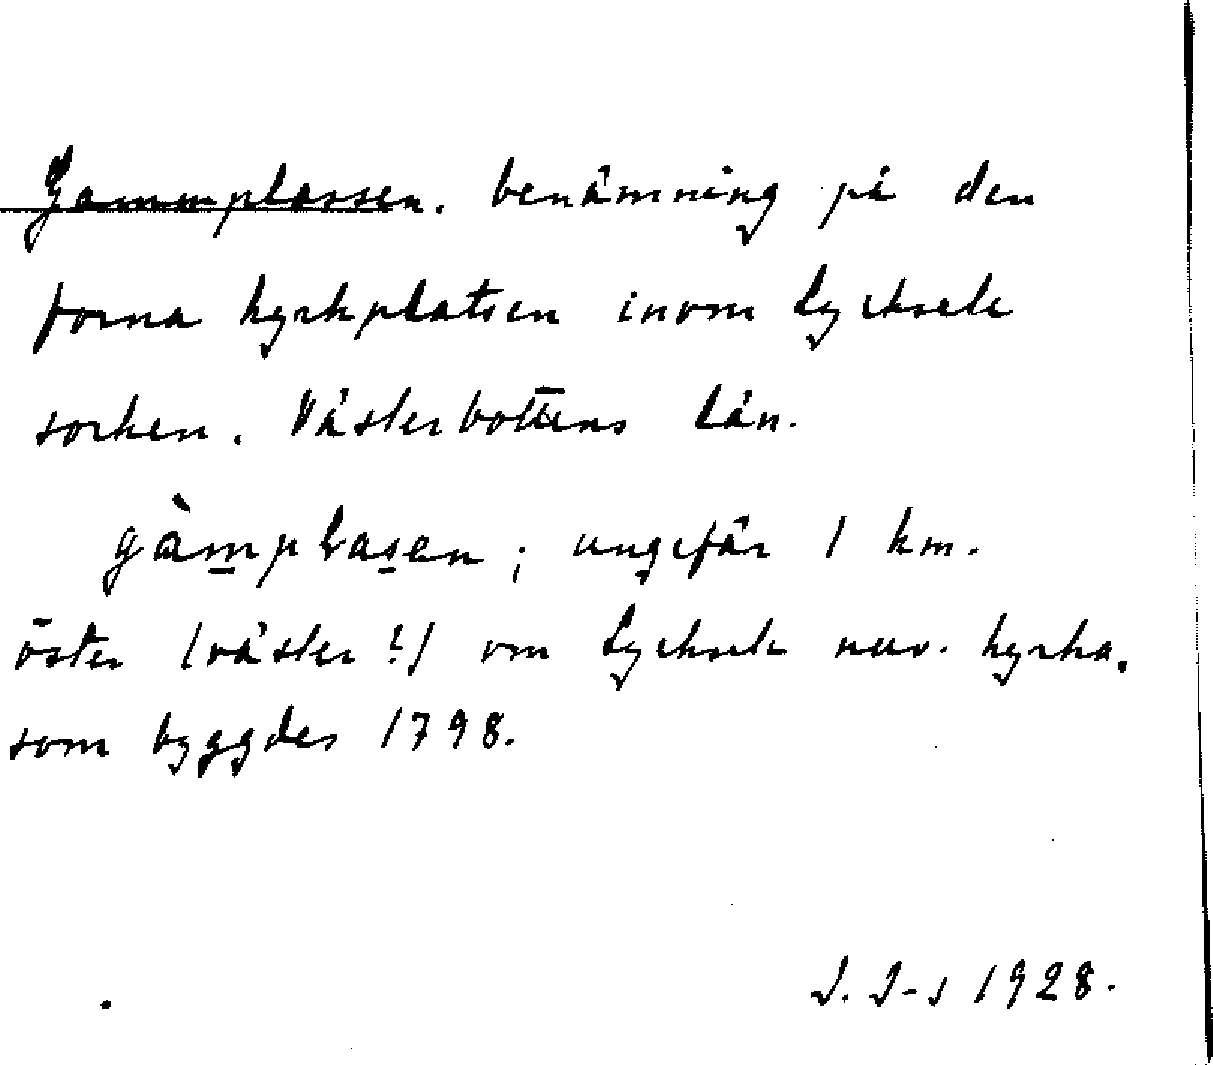 Gammplassen. benämning på den
forna kyrkplatsen inom Lycksele
socken. Västerbottens län.
gàmplasen; ungefär 1 km.
öster (väster?) om Lycksele nuv. kyrka.
som byggdes 1798.
J. J-s 1928.